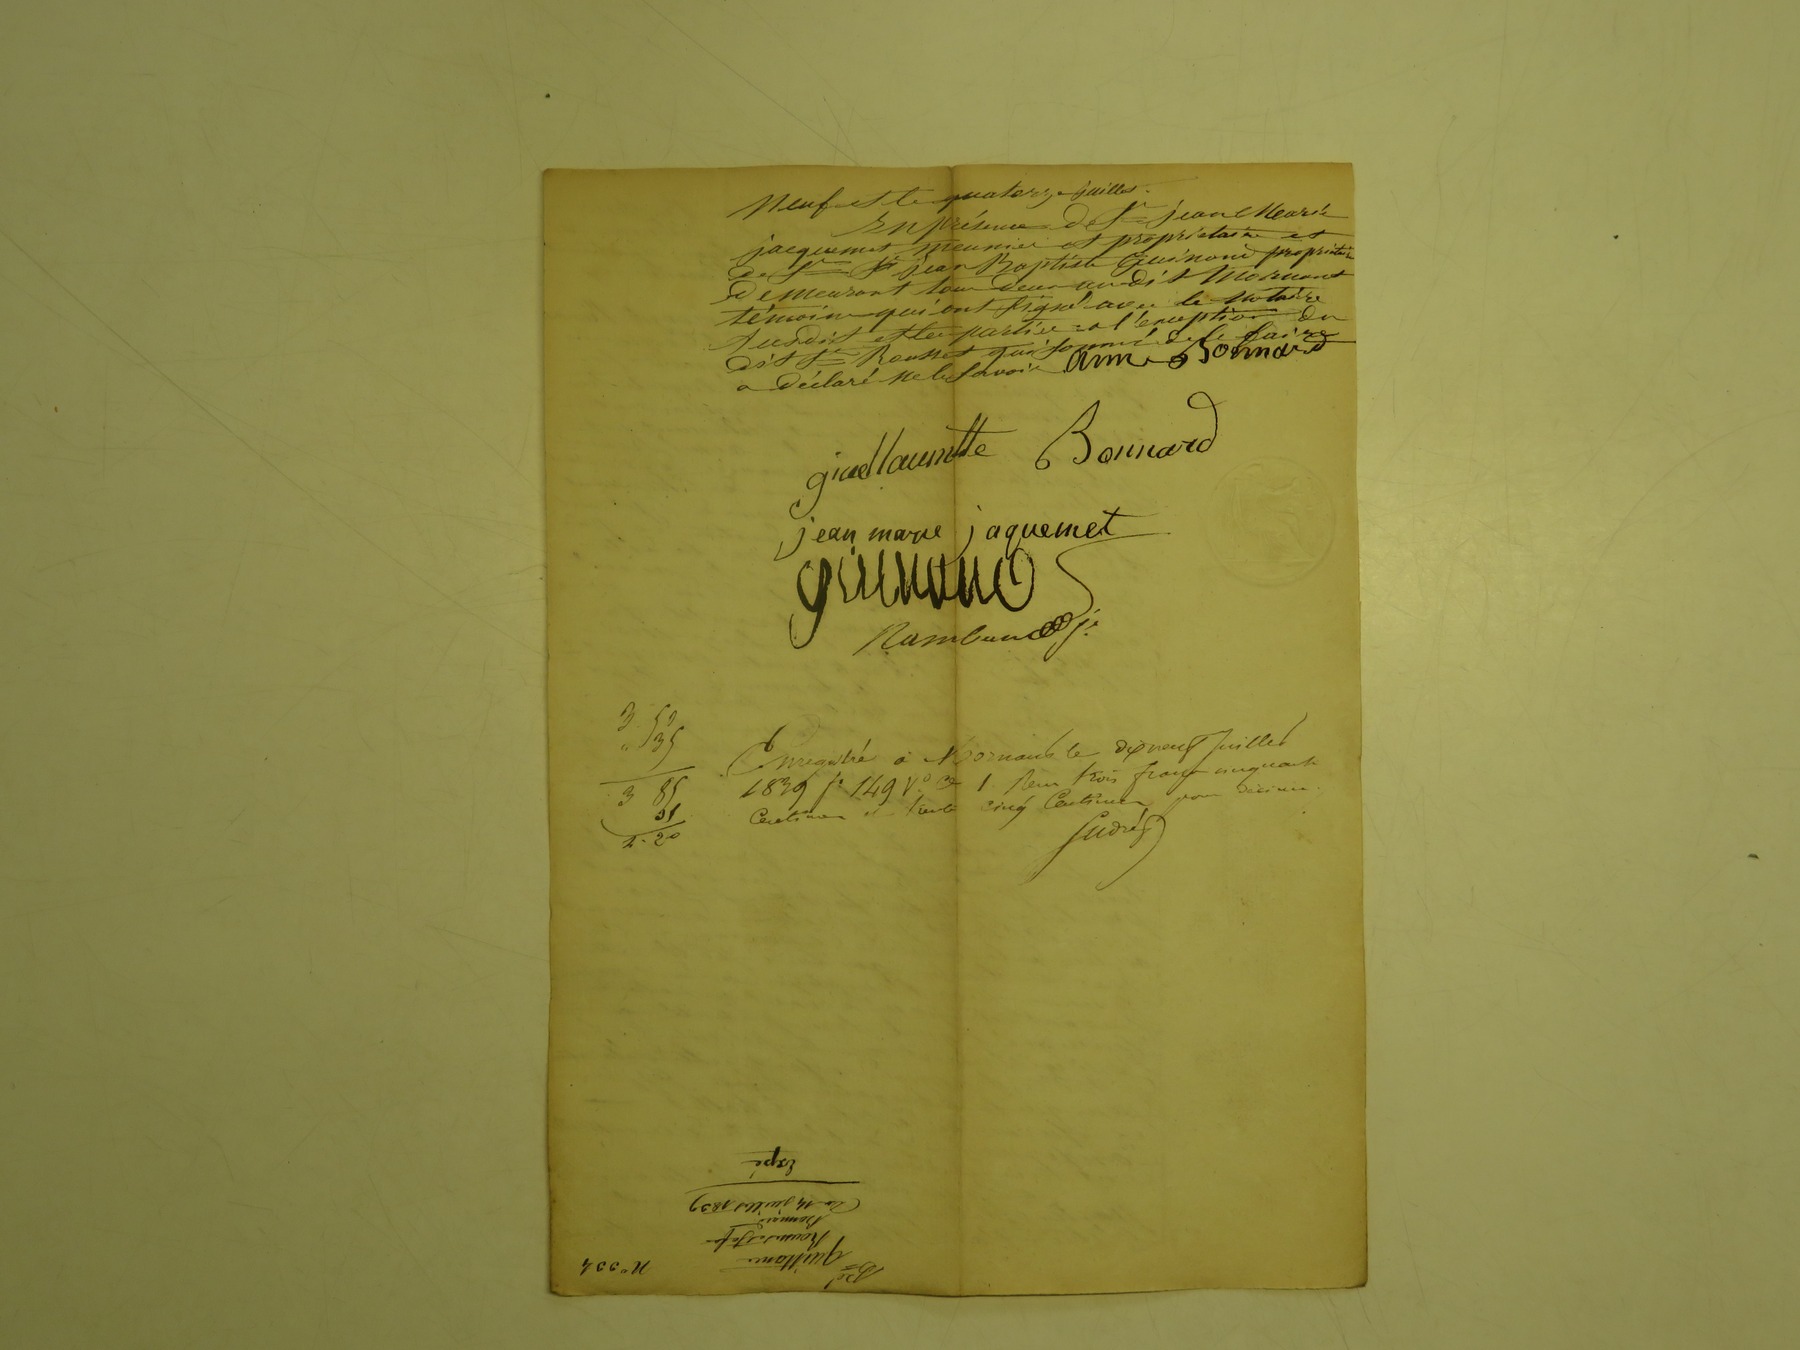 Neuf et le quatorze juillet.
En présence de Sr jean Marie
jacquemet meunier et propriétaire et
de Sr jean Baptiste Guinand propriétaire
demeurant tous deux audit Mornant
témoins qui ont signé avec le notaire
susdit et les parties à l'exception du
dit Sr Rousset qui sommé de le faire
a déclaré ne le savoir anne Bonnard
guillaumette Bonnard
jean marie jaquemet
guinand
3 50
" 35
3 85
35
4. 20
Enregistré à Mornant le dix neuf Juillet
1839 fo 149 Vo Ce 1. Reçu trois francs cinquante
Centimes et trente cinq Centimes pour décime.
No 334
quittance
Bonnard
Du 14 juillet 1839
Expé